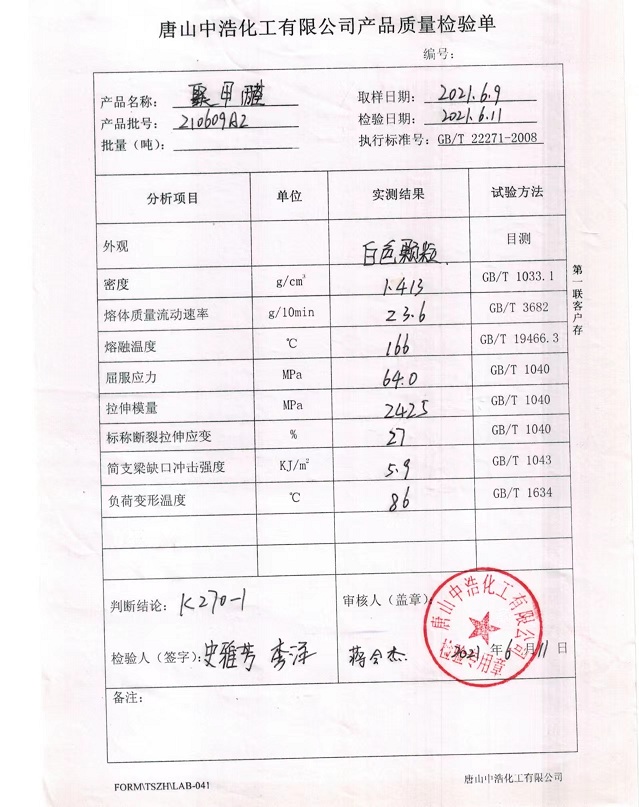 唐山中浩化工有限公司产品质量检验单
编号：
产品名称： 聚甲醛 取样日期： 2021.6.9
产品批号： 210609A2 检验日期： 2021.6.11
批量（吨）： 执行标准号：GB/T 22271-2008
分析项目 单位 实测结果 试验方法
外观 白色颗粒 目测
密度 g/cm³ 1.413 GB/T 1033.1
熔体质量流动速率 g/10min 23.6 GB/T 3682
熔融温度 ℃ 166 GB/T 19466.3
屈服应力 MPa 64.0 GB/T 1040
拉伸模量 MPa 2425 GB/T 1040
标称断裂拉伸应变 % 27 GB/T 1040
简支梁缺口冲击强度 KJ/m² 5.9 GB/T 1043
负荷变形温度 ℃ 86 GB/T 1634
第一联客户存
判断结论：K270-1 审核人（盖章）：
唐山中浩化工有限公司
检验专用章
检验人（签字）：史雅芳 李泽 蒋会杰 2021 年 6 月 11 日
备注：
FORM\TSZH\LAB-041 唐山中浩化工有限公司